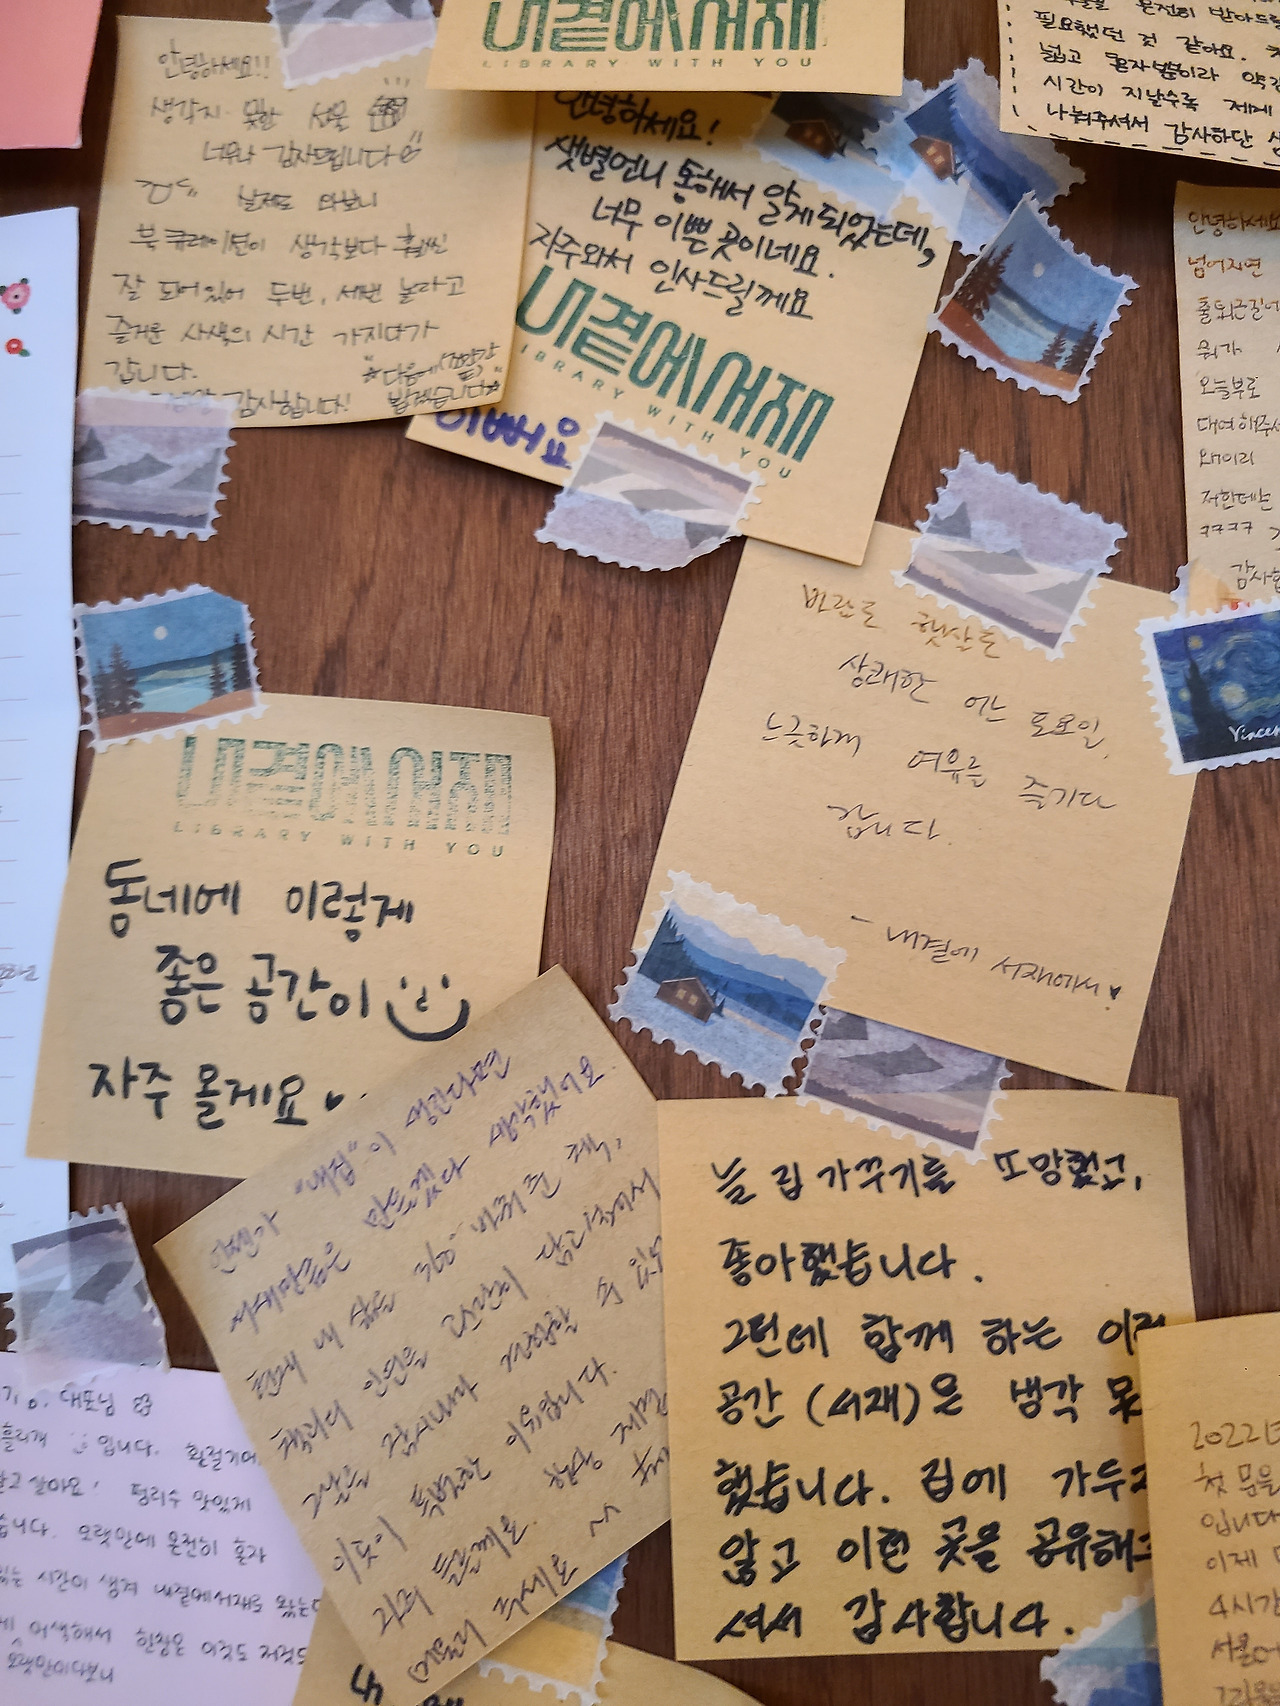 내곁에서재
LIBRARY WITH YOU
필요했던 것 같아요.
넓고 혼자뿐이라
시간이 지날수록 제게
나눠주셔서 감사하단
안녕하세요!!
생각지 못한 선물
너무나 감사드립니다
실제로 와보니
북큐레이션이 생각보다 훨씬
잘 되어있어 두번, 세번 놀라고
즐거운 사색의 시간 가지다가
갑니다.
감사합니다!
안녕하세요!
샛별언니 통해서 알게되었는데,
너무 이쁜 곳이네요.
자주와서 인사드릴게요
내곁에서재
LIBRARY WITH YOU
이뻐요
안녕하세요
넘어지면
출퇴근길에
뭐가
오늘부로
대여해주셔
왜이리
저한테는
ㅋㅋㅋㅋ
바람도 햇살도
상쾌한 어느 토요일,
느긋하게 여유를 즐기다
갑니다.
- 내곁에 서재에서♥
Vincen
내곁에서재
LIBRARY WITH YOU
동네에 이렇게
좋은 공간이
자주 올게요
언젠가 "내집"이 생긴다면
서재만큼은 만들겠다 생각했어요.
현재 내 삶을 360° 바꿔준 책,
이곳이 특별한 이유입니다.
자주 들를께요. 항상
주세요
늘 집 가꾸기를 또 망했고,
좋아했습니다.
그런데 함께 하는 이런
공간 (서재)은 생각 못
했습니다. 집에 가두지
않고 이런 곳을 공유해주
셔서 감사합니다.
대표님
입니다. 환절기에
알고 살아요! 커피수 맛있게
습니다. 오랫만에 온전히 혼자
있는 시간이 생겨 내곁에서재로 왔는데
어색해서 한참은 이것도 저것도
오랫만이다보니
2022년
첫 문을
입니다
이제
4시간
서울에